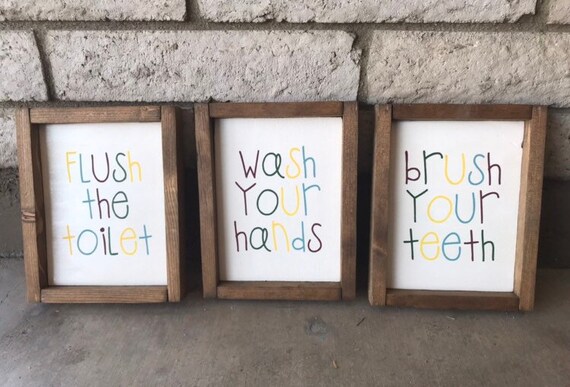 FLUSh
the
toilet
wash
YOUr
hands
brush
YOUr
teeth